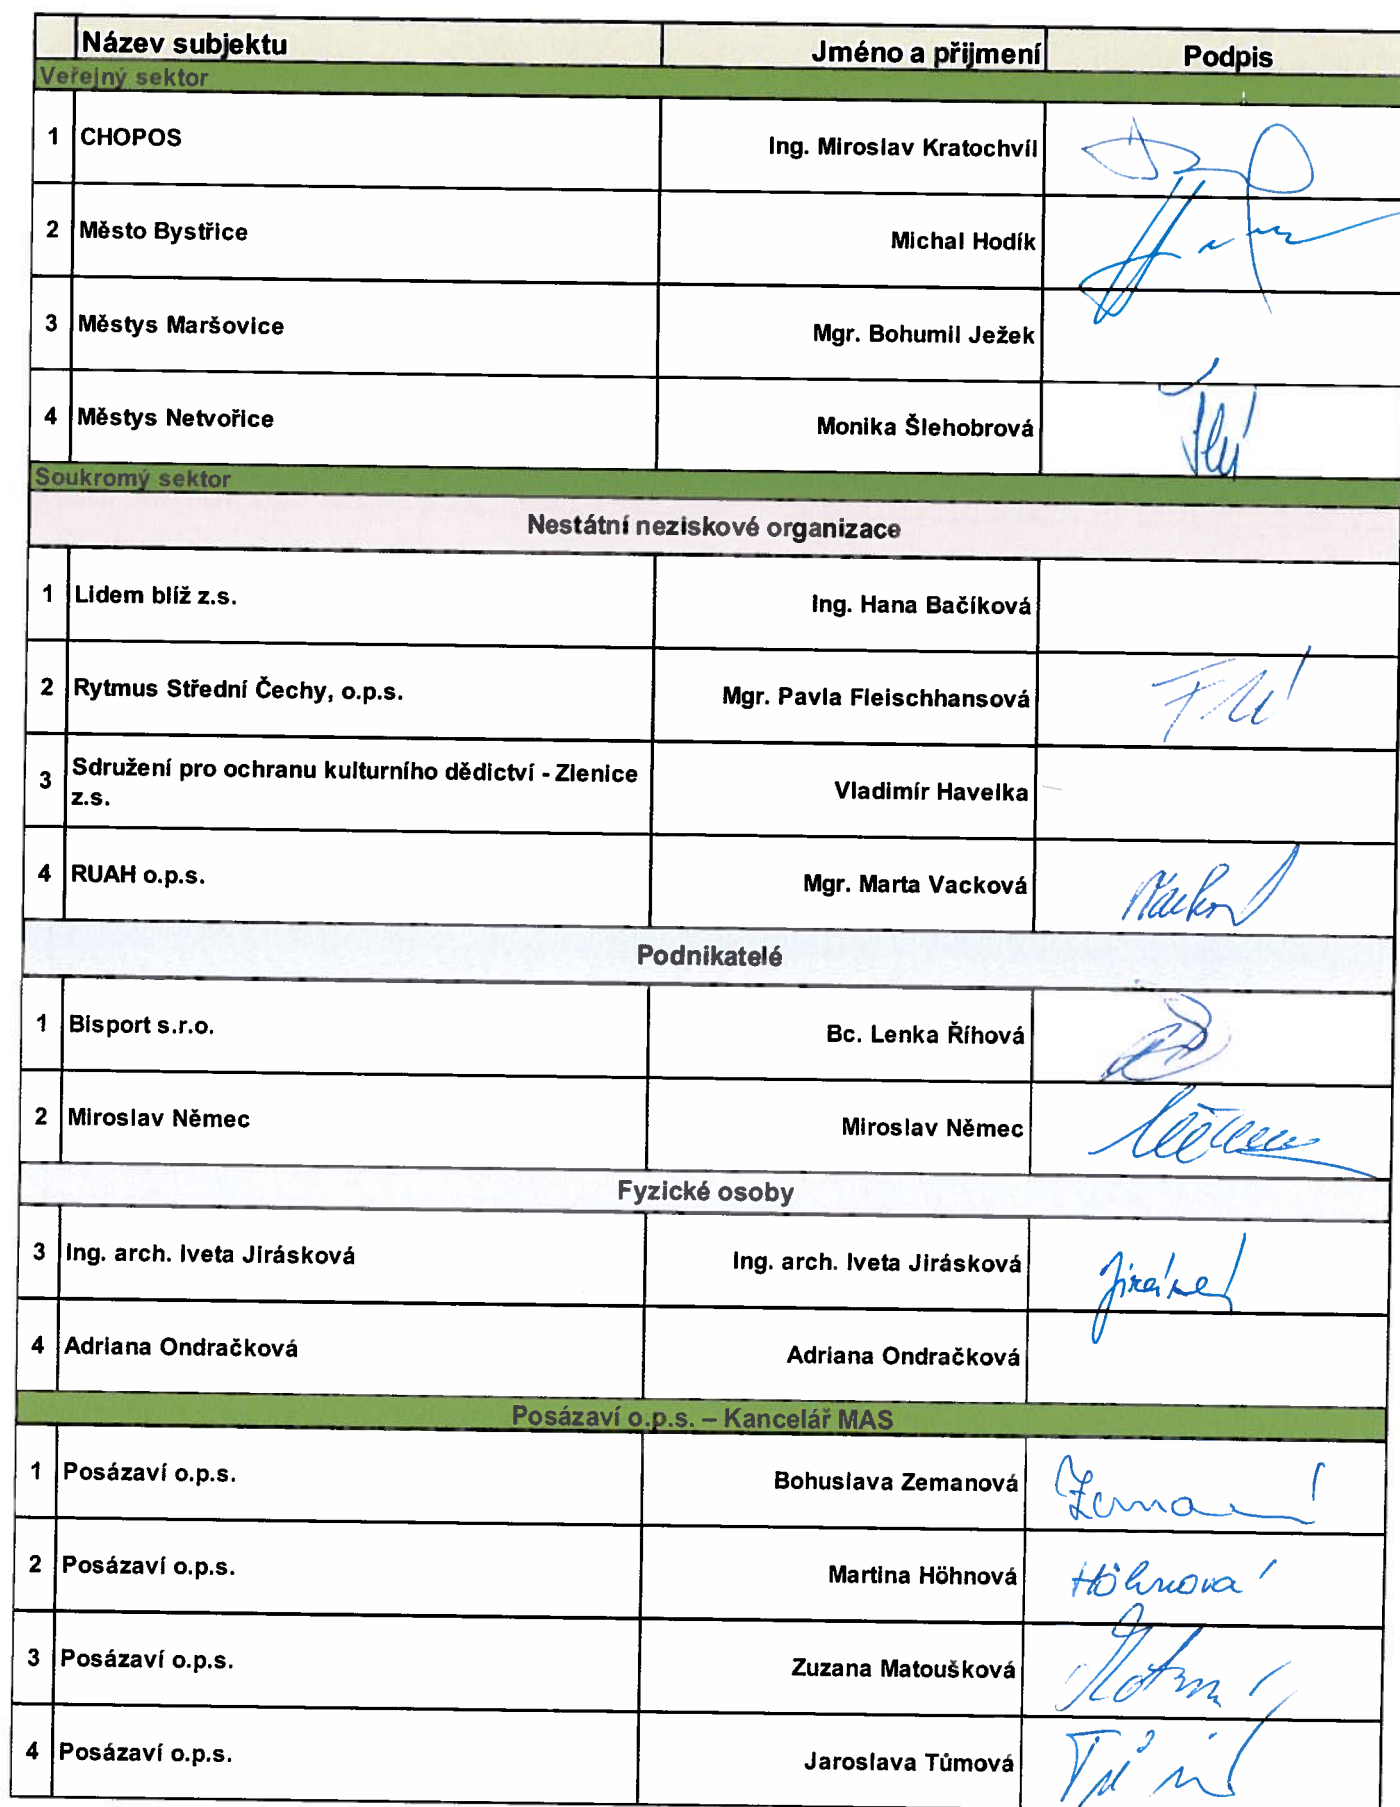 Název subjektu Jméno a přijmení Podpis
Veřejný sektor
1 CHOPOS Ing. Miroslav Kratochvíl
2 Město Bystřice Michal Hodík
3 Městys Maršovice Mgr. Bohumil Ježek
4 Městys Netvořice Monika Šlehobrová
Soukromý sektor
Nestátní neziskové organizace
1 Lidem blíž z.s. Ing. Hana Bačíková
2 Rytmus Střední Čechy, o.p.s. Mgr. Pavla Fleischhansová
3 Sdružení pro ochranu kulturního dědictví - Zlenice
z.s. Vladimír Havelka
4 RUAH o.p.s. Mgr. Marta Vacková
Podnikatelé
1 Bisport s.r.o. Bc. Lenka Říhová
2 Miroslav Němec Miroslav Němec
Fyzické osoby
3 Ing. arch. Iveta Jirásková Ing. arch. Iveta Jirásková
4 Adriana Ondračková Adriana Ondračková
Posázaví o.p.s. – Kancelář MAS
1 Posázaví o.p.s. Bohuslava Zemanová
2 Posázaví o.p.s. Martina Höhnová Höhnová
3 Posázaví o.p.s. Zuzana Matoušková
4 Posázaví o.p.s. Jaroslava Tůmová